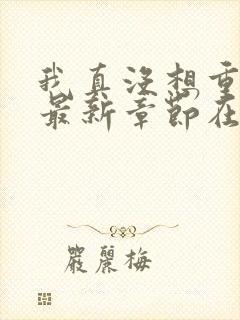 我真没想重
最新章节在
严丽梅